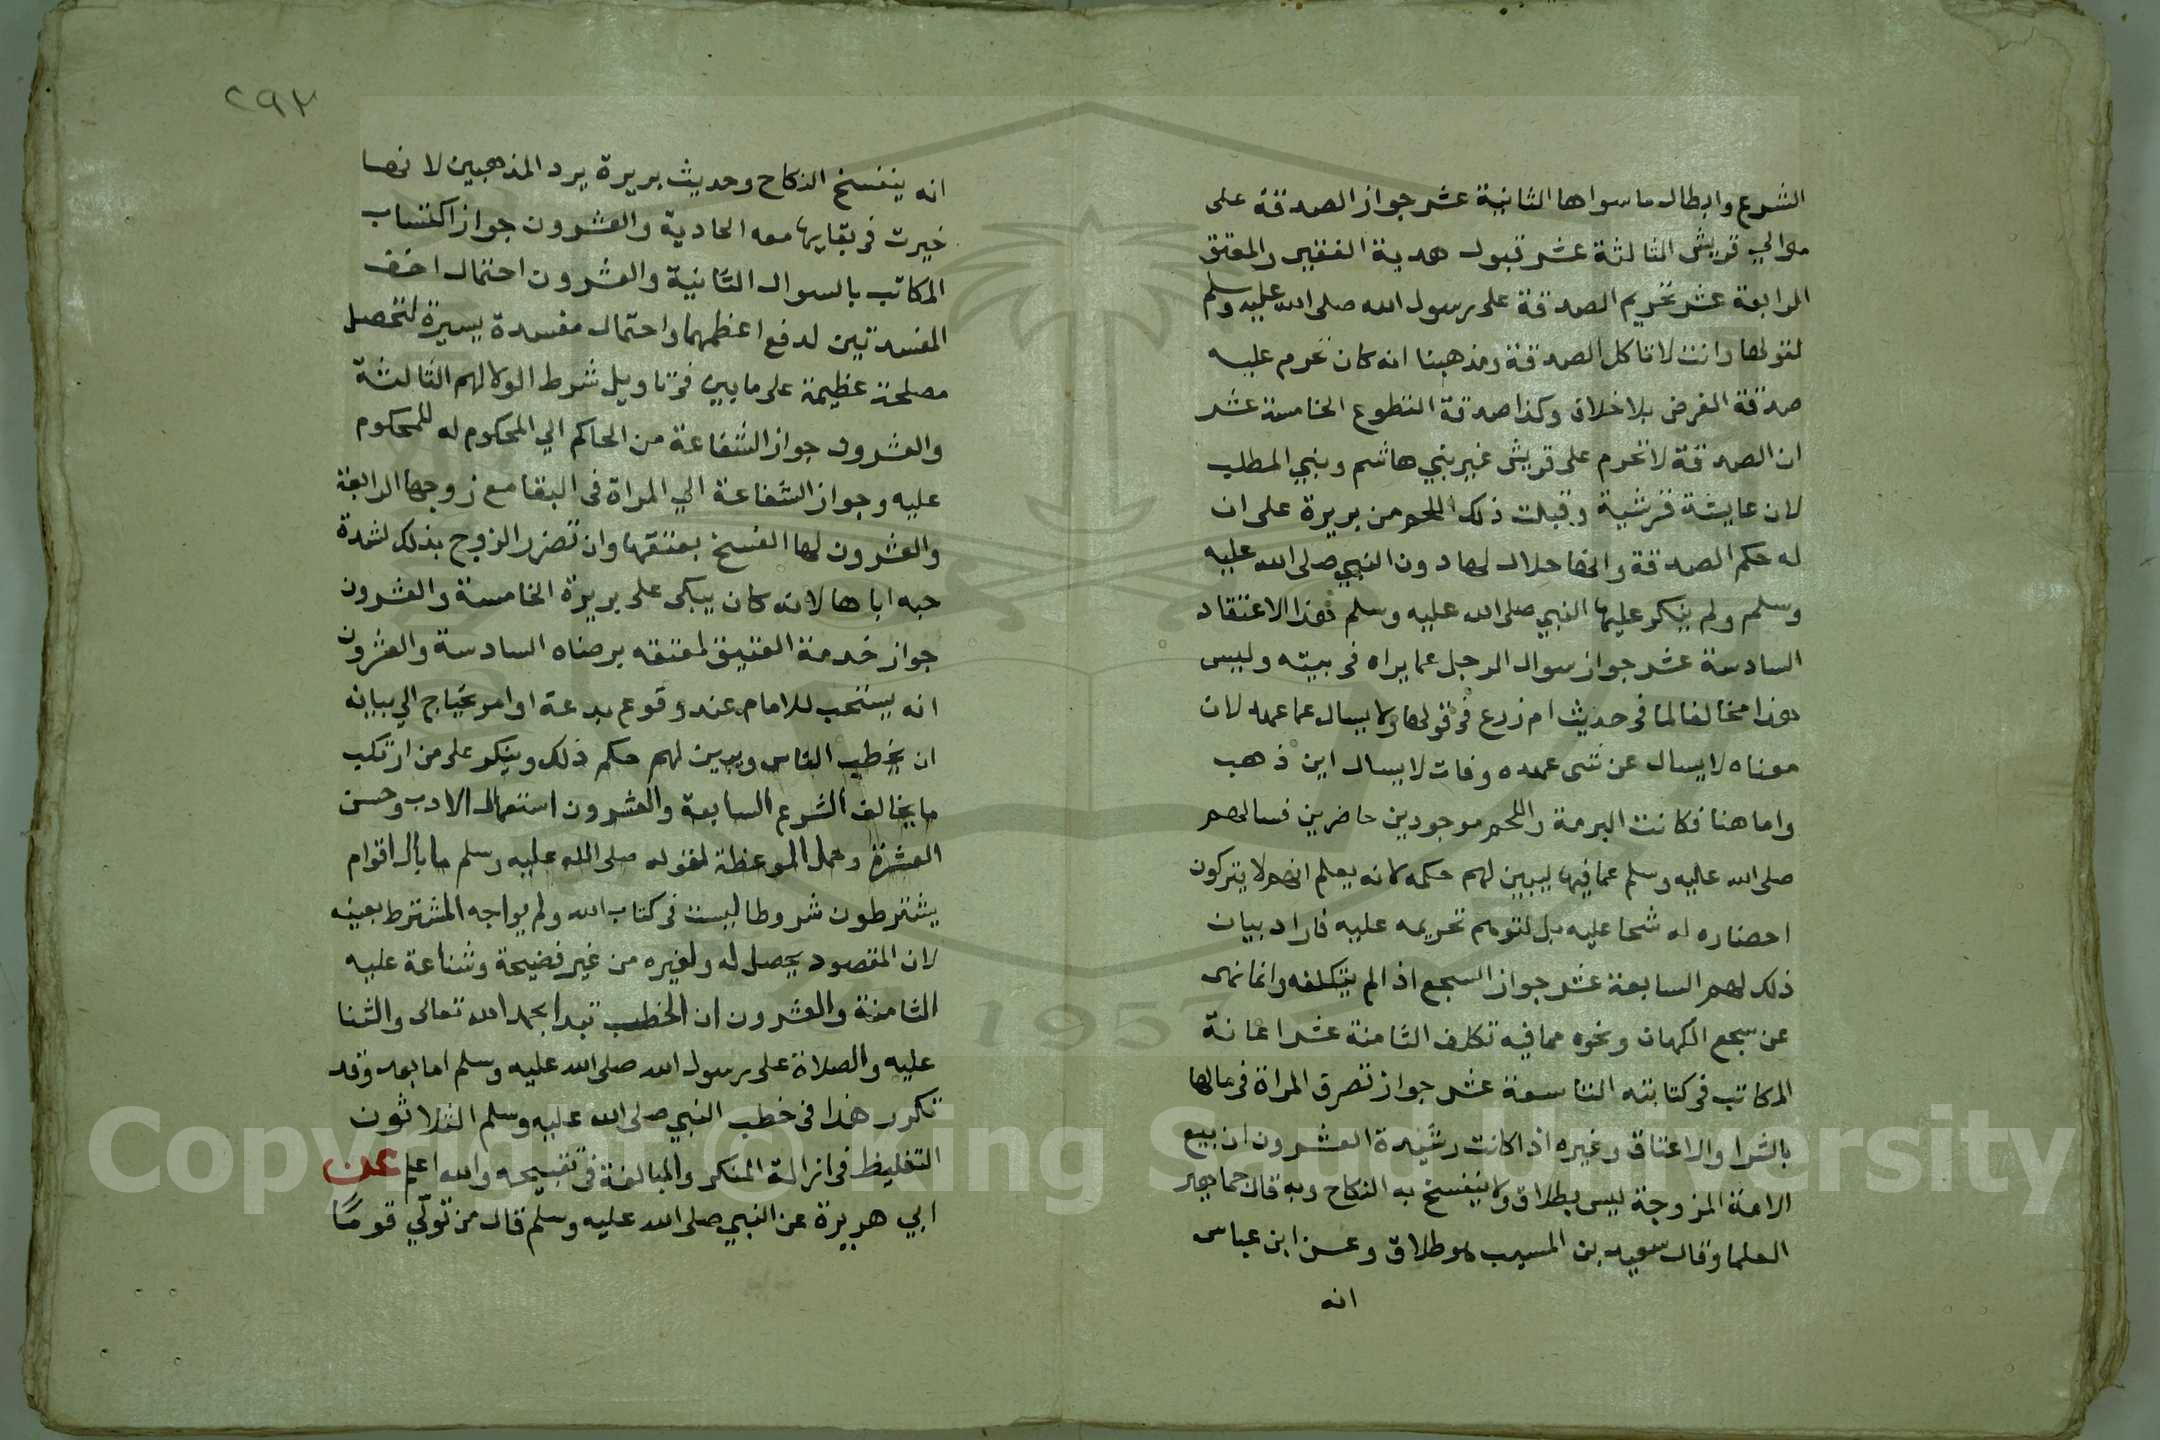 الشرع وابطال ما سواها الثانية عشر جواز الصدقة على
موالي قريش الثالثة عشر قبول هدية الفقير والمعتق
الرابعة عشر تحريم الصدقة على رسول الله صلى الله عليه وسلم
لقولها وانت لا تاكل الصدقة ومذهبنا انه كان تحرم عليه
صدقة الفرض بلا خلاف وكذا صدقة التطوع الخامسة عشر
ان الصدقة لا تحرم على قريش غير بني هاشم وبني المطلب
لان عايشة قرشية وقبلت ذلك اللحم من بريرة على ان
له حكم الصدقة وانها حلال لها دون النبي صلى الله عليه
وسلم ولم ينكر عليها النبي صلى الله عليه وسلم هذا الاعتقاد
السادسة عشر جواز سوال الرجل عما يراه في بيته وليس
هذا مخالفا لما في حديث ام زرع في قولها ولا يسال عما عهد لان
معناه لا يسال عن شى عهده وفات لا يسال اين ذهب
واما هنا فكانت البرمة واللحم موجودين حاضرين فسالهم
صلى الله عليه وسلم عما فيها ليبين لهم حكمه لانه يعلم انهم لا يتركون
احضاره له شحا عليه بل لتوهم تحريمه عليه فاراد بيان
ذلك لهم السابعة عشر جواز السجع اذا لم يتكلفه وانما نهى
عن سجع الكهان ونحوه مما فيه تكلف الثامنة عشر اعانة
المكاتب في كتابته التاسعة عشر جواز تصرف المراة في مالها
بالشرا والاعتاق وغيره اذا كانت رشيدة العشرون ان بيع
الامة المزوجة ليس بطلاق ولا ينفسخ به النكاح وبه قال جماهير
العلما وقال سعيد بن المسيب هو طلاق وعن ابن عباس
انه
٢٩٣
انه ينفسخ النكاح وحديث بريرة يرد المذهبين لانها
خيرت في بقايها معه الحادية والعشرون جواز اكتساب
المكاتب بالسوال الثانية والعشرون احتمال اخف
المفسدتين لدفع اعظمهما واحتمال مفسدة يسيرة لتحصل
مصلحة عظيمة على ما يبين في تاويل شرط الولا لهم الثالثة
والعشرون جواز الشفاعة من الحاكم الي المحكوم له للمحكوم
عليه وجواز الشفاعة الي المراة في البقا مع زوجها الرابعة
والعشرون لها الفسخ بعتقها وان تضرر الزوج بذلك لشدة
حبه اياها لانه كان يبكى على بريرة الخامسة والعشرون
جواز خدمة العتيق لمعتقه برضاه السادسة والعشرون
انه يستحب للامام عند وقوع بدعة او امر يحتاج الي بيانه
ان يخطب الناس ويبين لهم حكم ذلك وينكر على من ارتكب
ما يخالف الشرع السابعة والعشرون استعمال الادب وحسن
العشرة وجمل الموعظة لقوله صلى الله عليه وسلم ما بال اقوام
يشترطون شروطا ليست في كتاب الله ولم يواجه المشترط بعينه
لان المقصود يحصل له ولغيره من غير فضيحة وشناعة عليه
الثامنة والعشرون ان الخطب تبدا بحمد الله تعالى والثنا
عليه والصلاة على رسول الله صلى الله عليه وسلم اما بعد وقد
تكرر هذا في خطب النبي صلى الله عليه وسلم الثلاثون
التغليظ في ازالة المنكر والمبالغة في تقبيحه والله اعلم عن
ابي هريرة عن النبي صلى الله عليه وسلم قال من تولّي قومًا
1957
Copyright © King Saud University